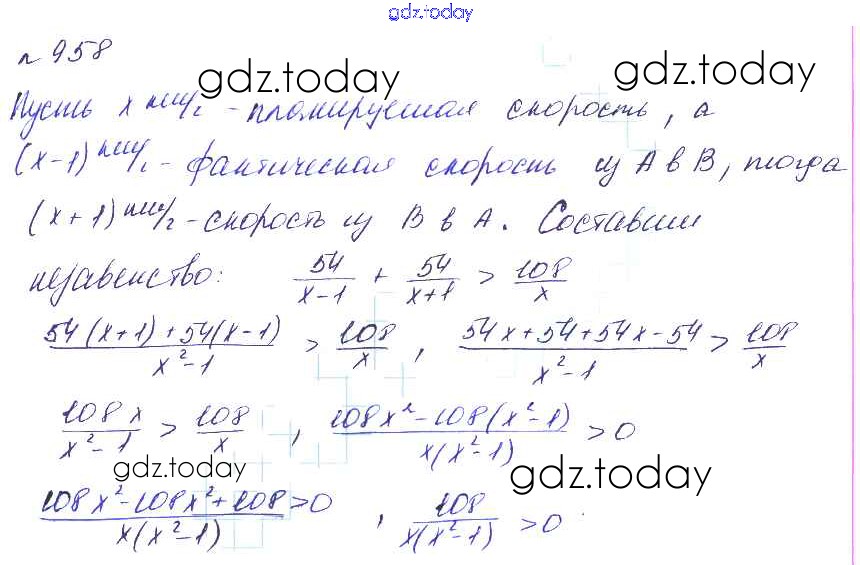 gdz.today
№ 958
gdz.today gdz.today
Пусть x км/ч - планируемая скорость, а
(x-1) км/ч - фактическая скорость из A в B, тогда
(x+1) км/ч - скорость из B в A. Составим
неравенство: 54/(x-1) + 54/(x+1) > 108/x
(54(x+1)+54(x-1))/(x²-1) > 108/x , (54x+54+54x-54)/(x²-1) > 108/x
108x/(x²-1) > 108/x , (108x²-108(x²-1))/(x(x²-1)) > 0
gdz.today gdz.today
(108x²-108x²+108)/(x(x²-1)) > 0 , 108/(x(x²-1)) > 0